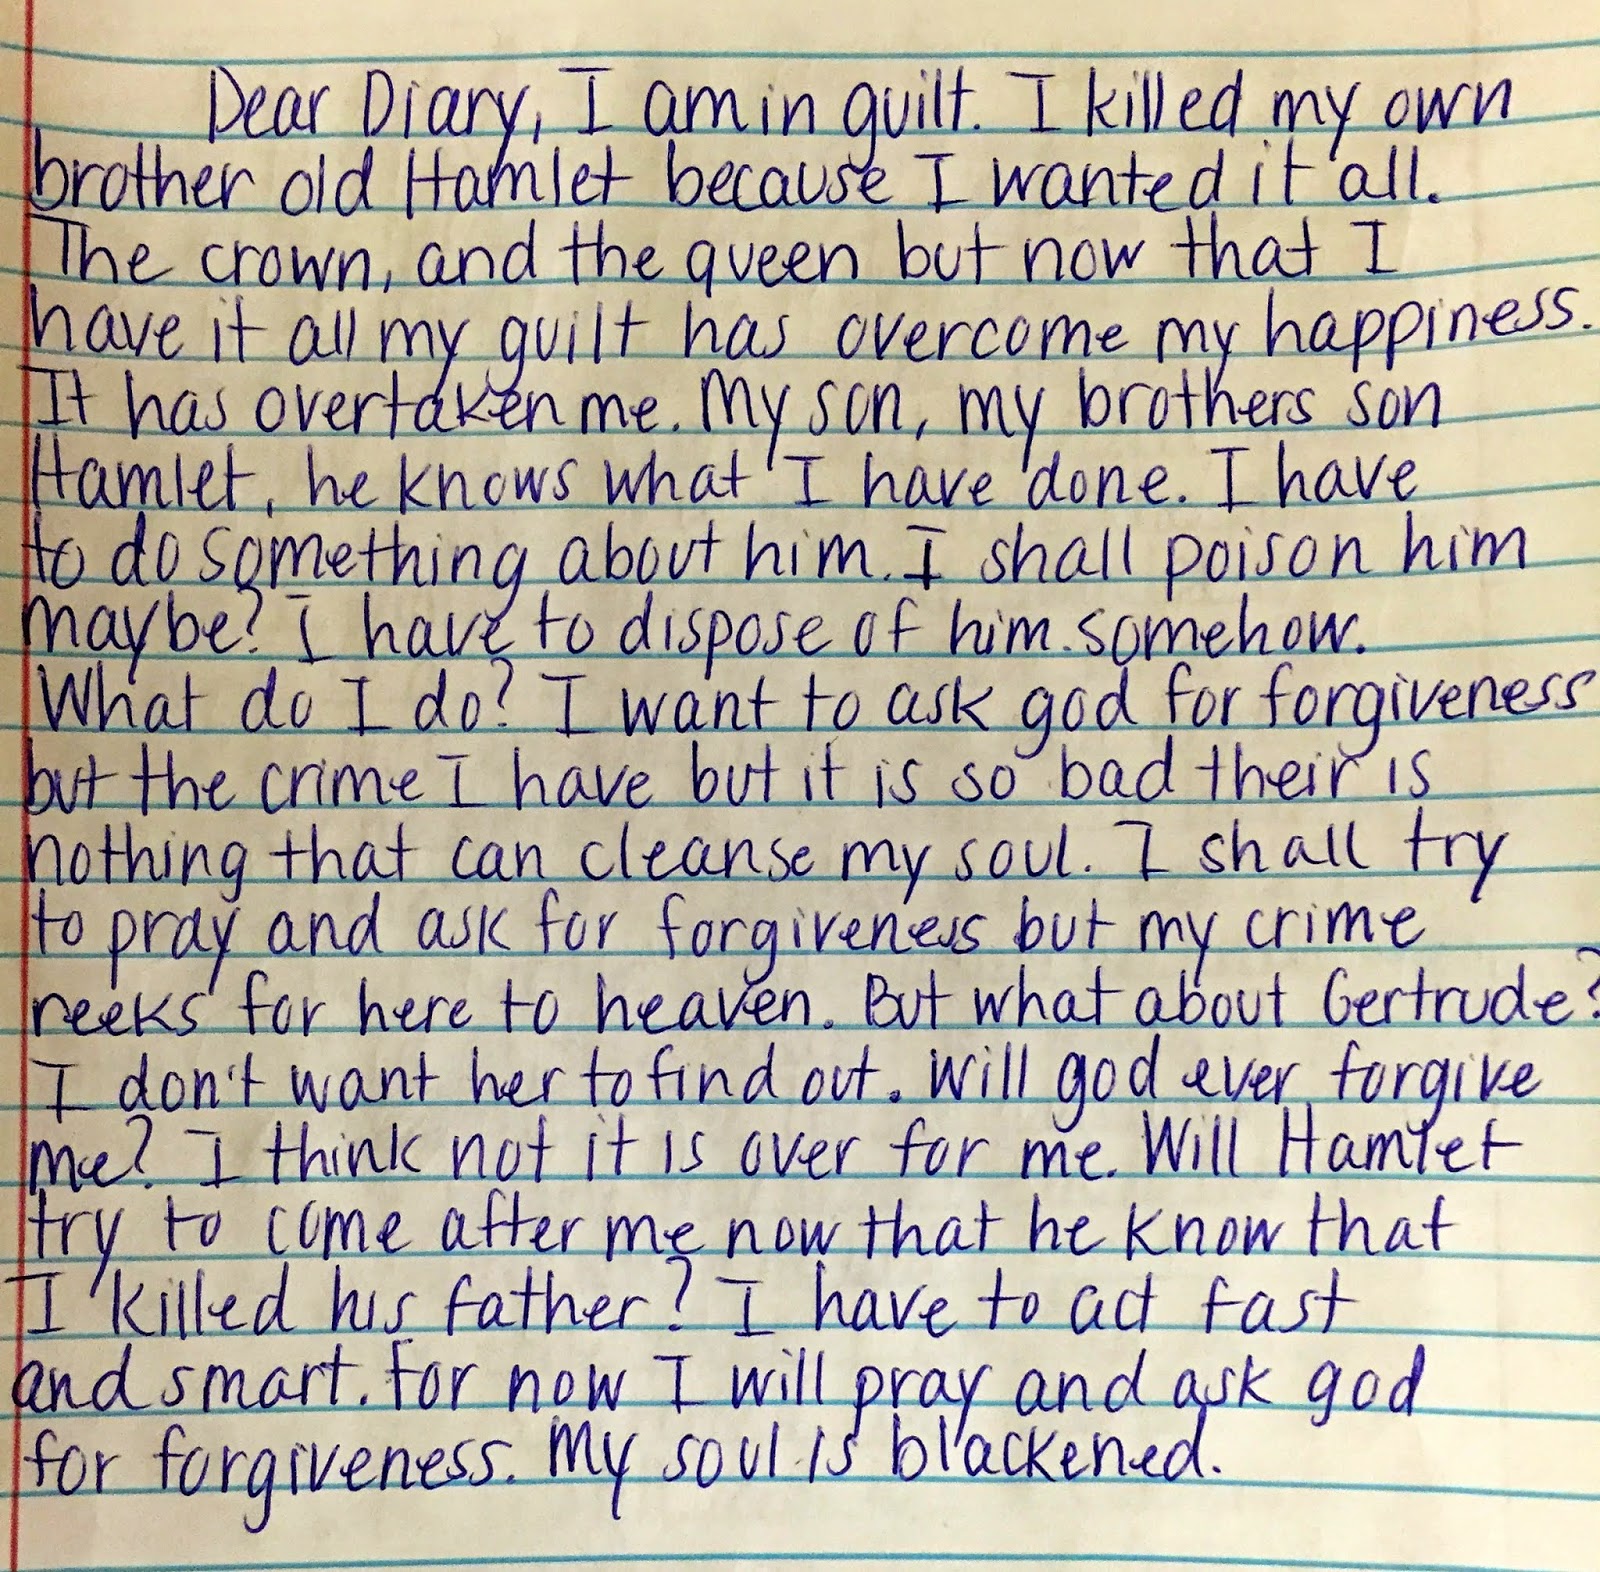 Dear Diary, I am in guilt. I killed my own
brother old Hamlet because I wanted it all.
The crown, and the queen but now that I
have it all my guilt has overcome my happiness.
It has overtaken me. My son, my brothers son
Hamlet, he knows what I have done. I have
to do something about him. I shall poison him
maybe? I have to dispose of him. somehow.
What do I do? I want to ask god for forgiveness
but the crime I have but it is so bad their is
nothing that can cleanse my soul. I shall try
to pray and ask for forgiveness but my crime
reeks for here to heaven. But what about Gertrude?
I don't want her to find out. Will god ever forgive
me? I think not it is over for me. Will Hamlet
try to come after me now that he know that
I killed his father? I have to act fast
and smart. For now I will pray and ask god
for forgiveness. My soul is blackened.